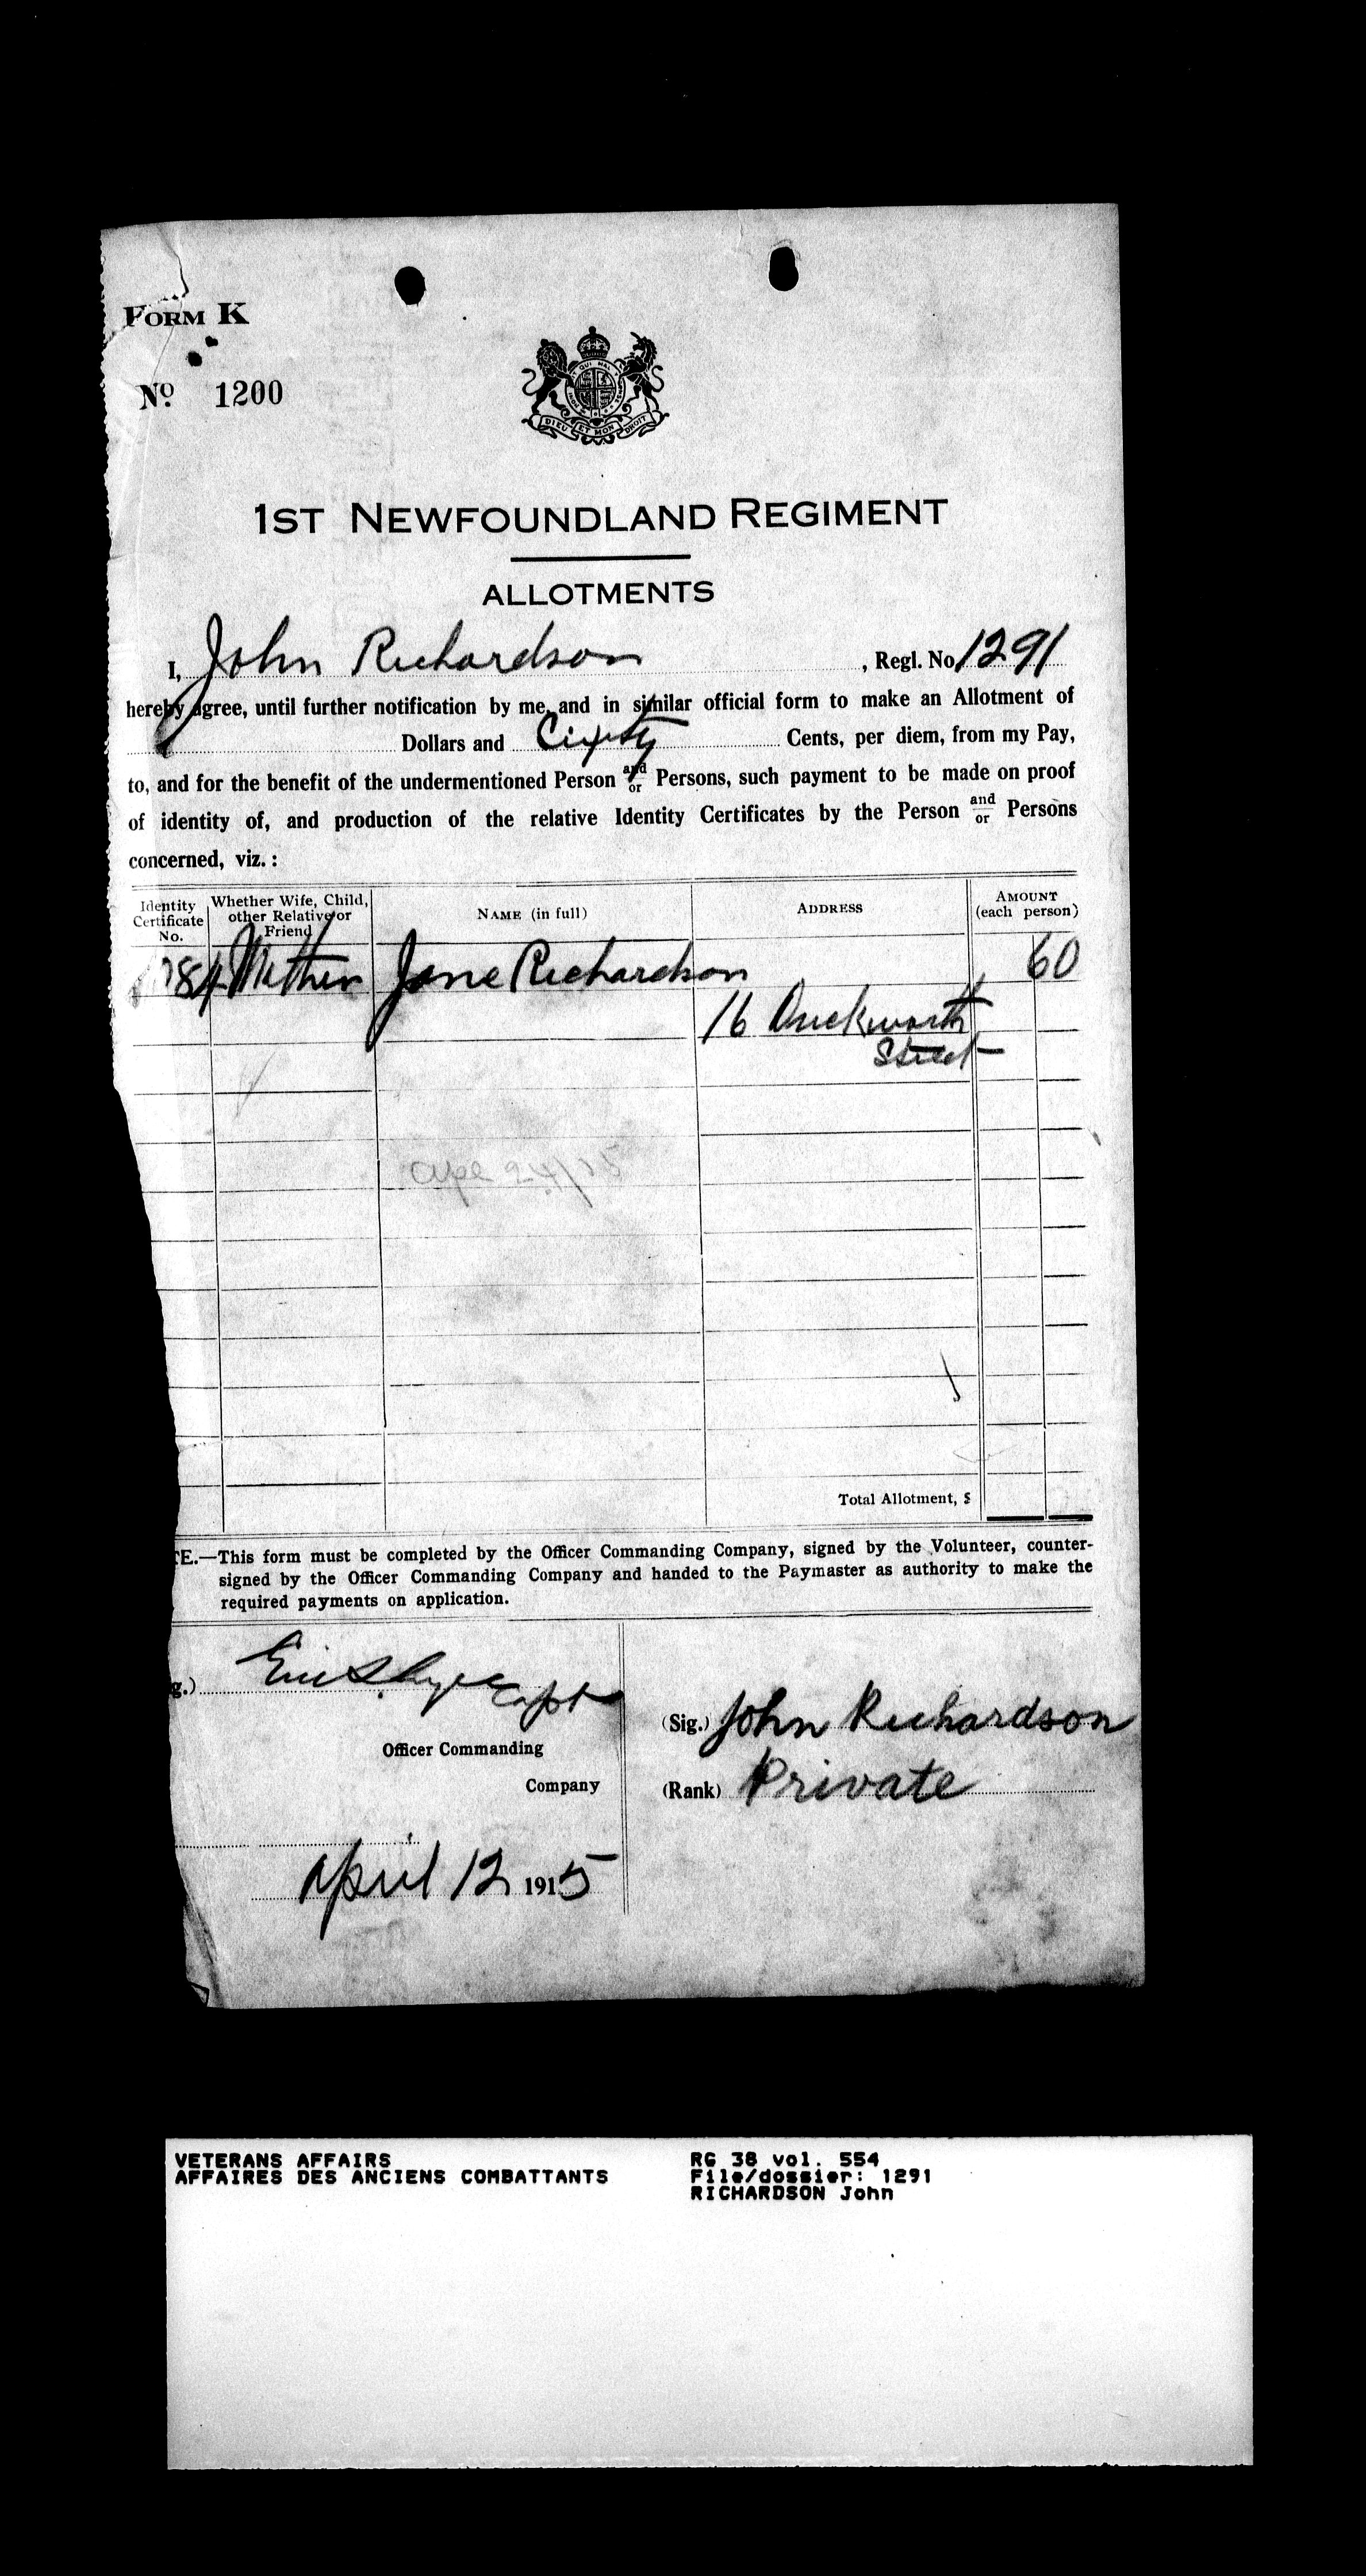 FORM K
No. 1200
DIEU ET MON DROIT
1ST NEWFOUNDLAND REGIMENT
ALLOTMENTS
I, John Richardson, Regl. No. 1291
hereby agree, until further notification by me, and in similar official form to make an Allotment of
Dollars and Cixty Cents, per diem, from my Pay,
to, and for the benefit of the undermentioned Person and/or Persons, such payment to be made on proof
of identity of, and production of the relative Identity Certificates by the Person and/or Persons
concerned, viz.:
Identity Certificate No. Whether Wife, Child, other Relative or Friend NAME (in full) ADDRESS AMOUNT (each person)
Mother Jane Richardson 60
16 Duckworth
Street
Total Allotment, $
TE.—This form must be completed by the Officer Commanding Company, signed by the Volunteer, counter-
signed by the Officer Commanding Company and handed to the Paymaster as authority to make the
required payments on application.
g.) Capt
(Sig.) John Richardson
Officer Commanding
Company
(Rank) Private
April 12 1915
VETERANS AFFAIRS RG 38 vol. 554
AFFAIRES DES ANCIENS COMBATTANTS File/dossier: 1291
RICHARDSON John